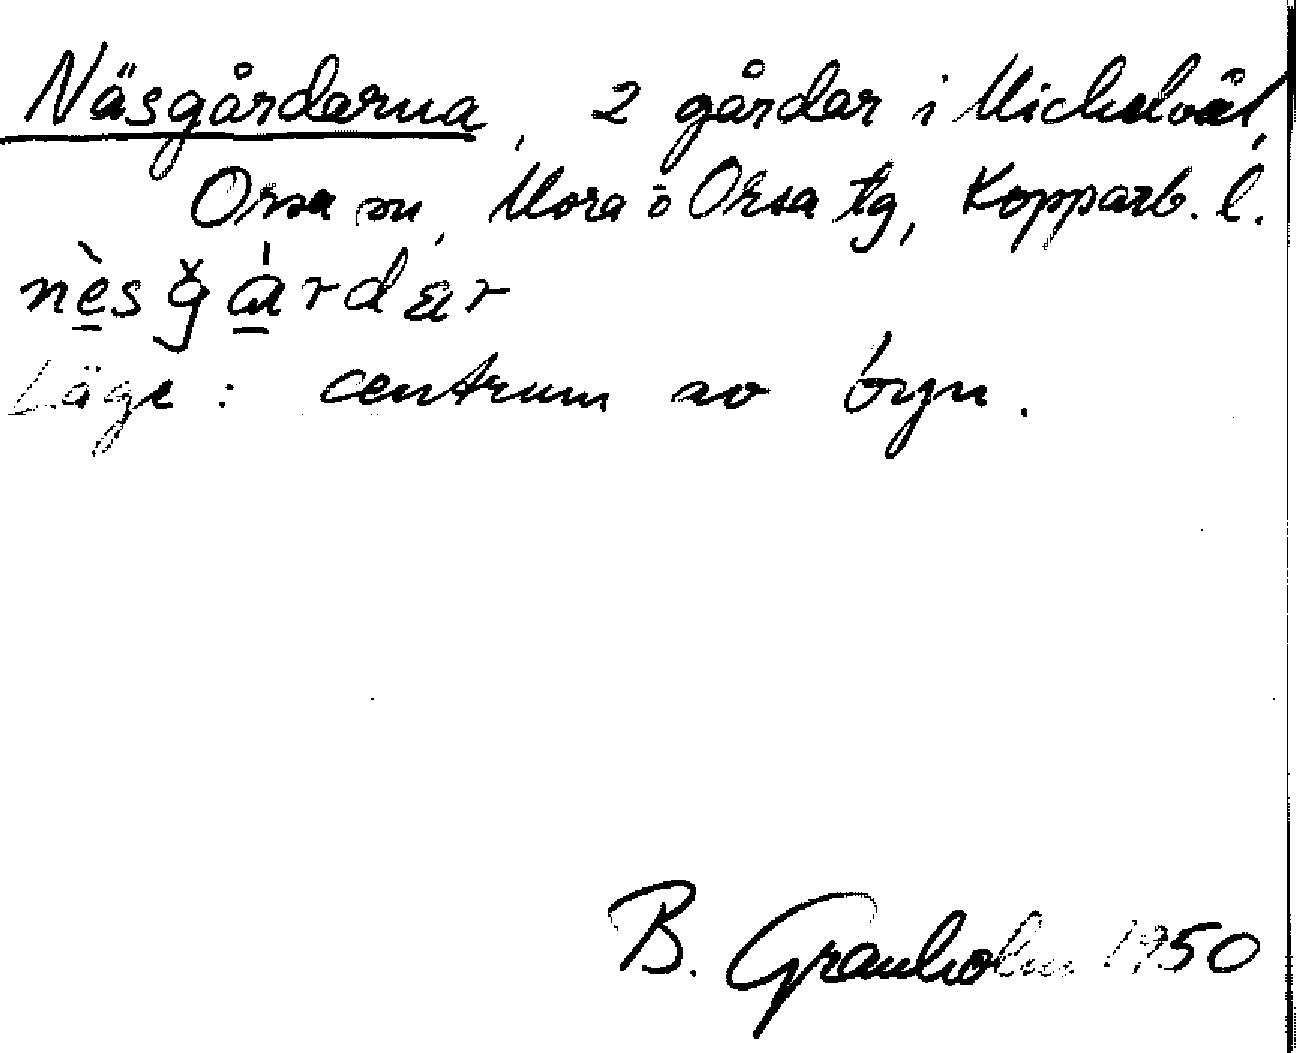 Näsgårdarna, 2 gårdar i Mickelvål,
Orsa sn, Mora o Orsa tg, Kopparb. l.
nèsğárdar
Läge: centrum av byn.
B. Granholm 1950